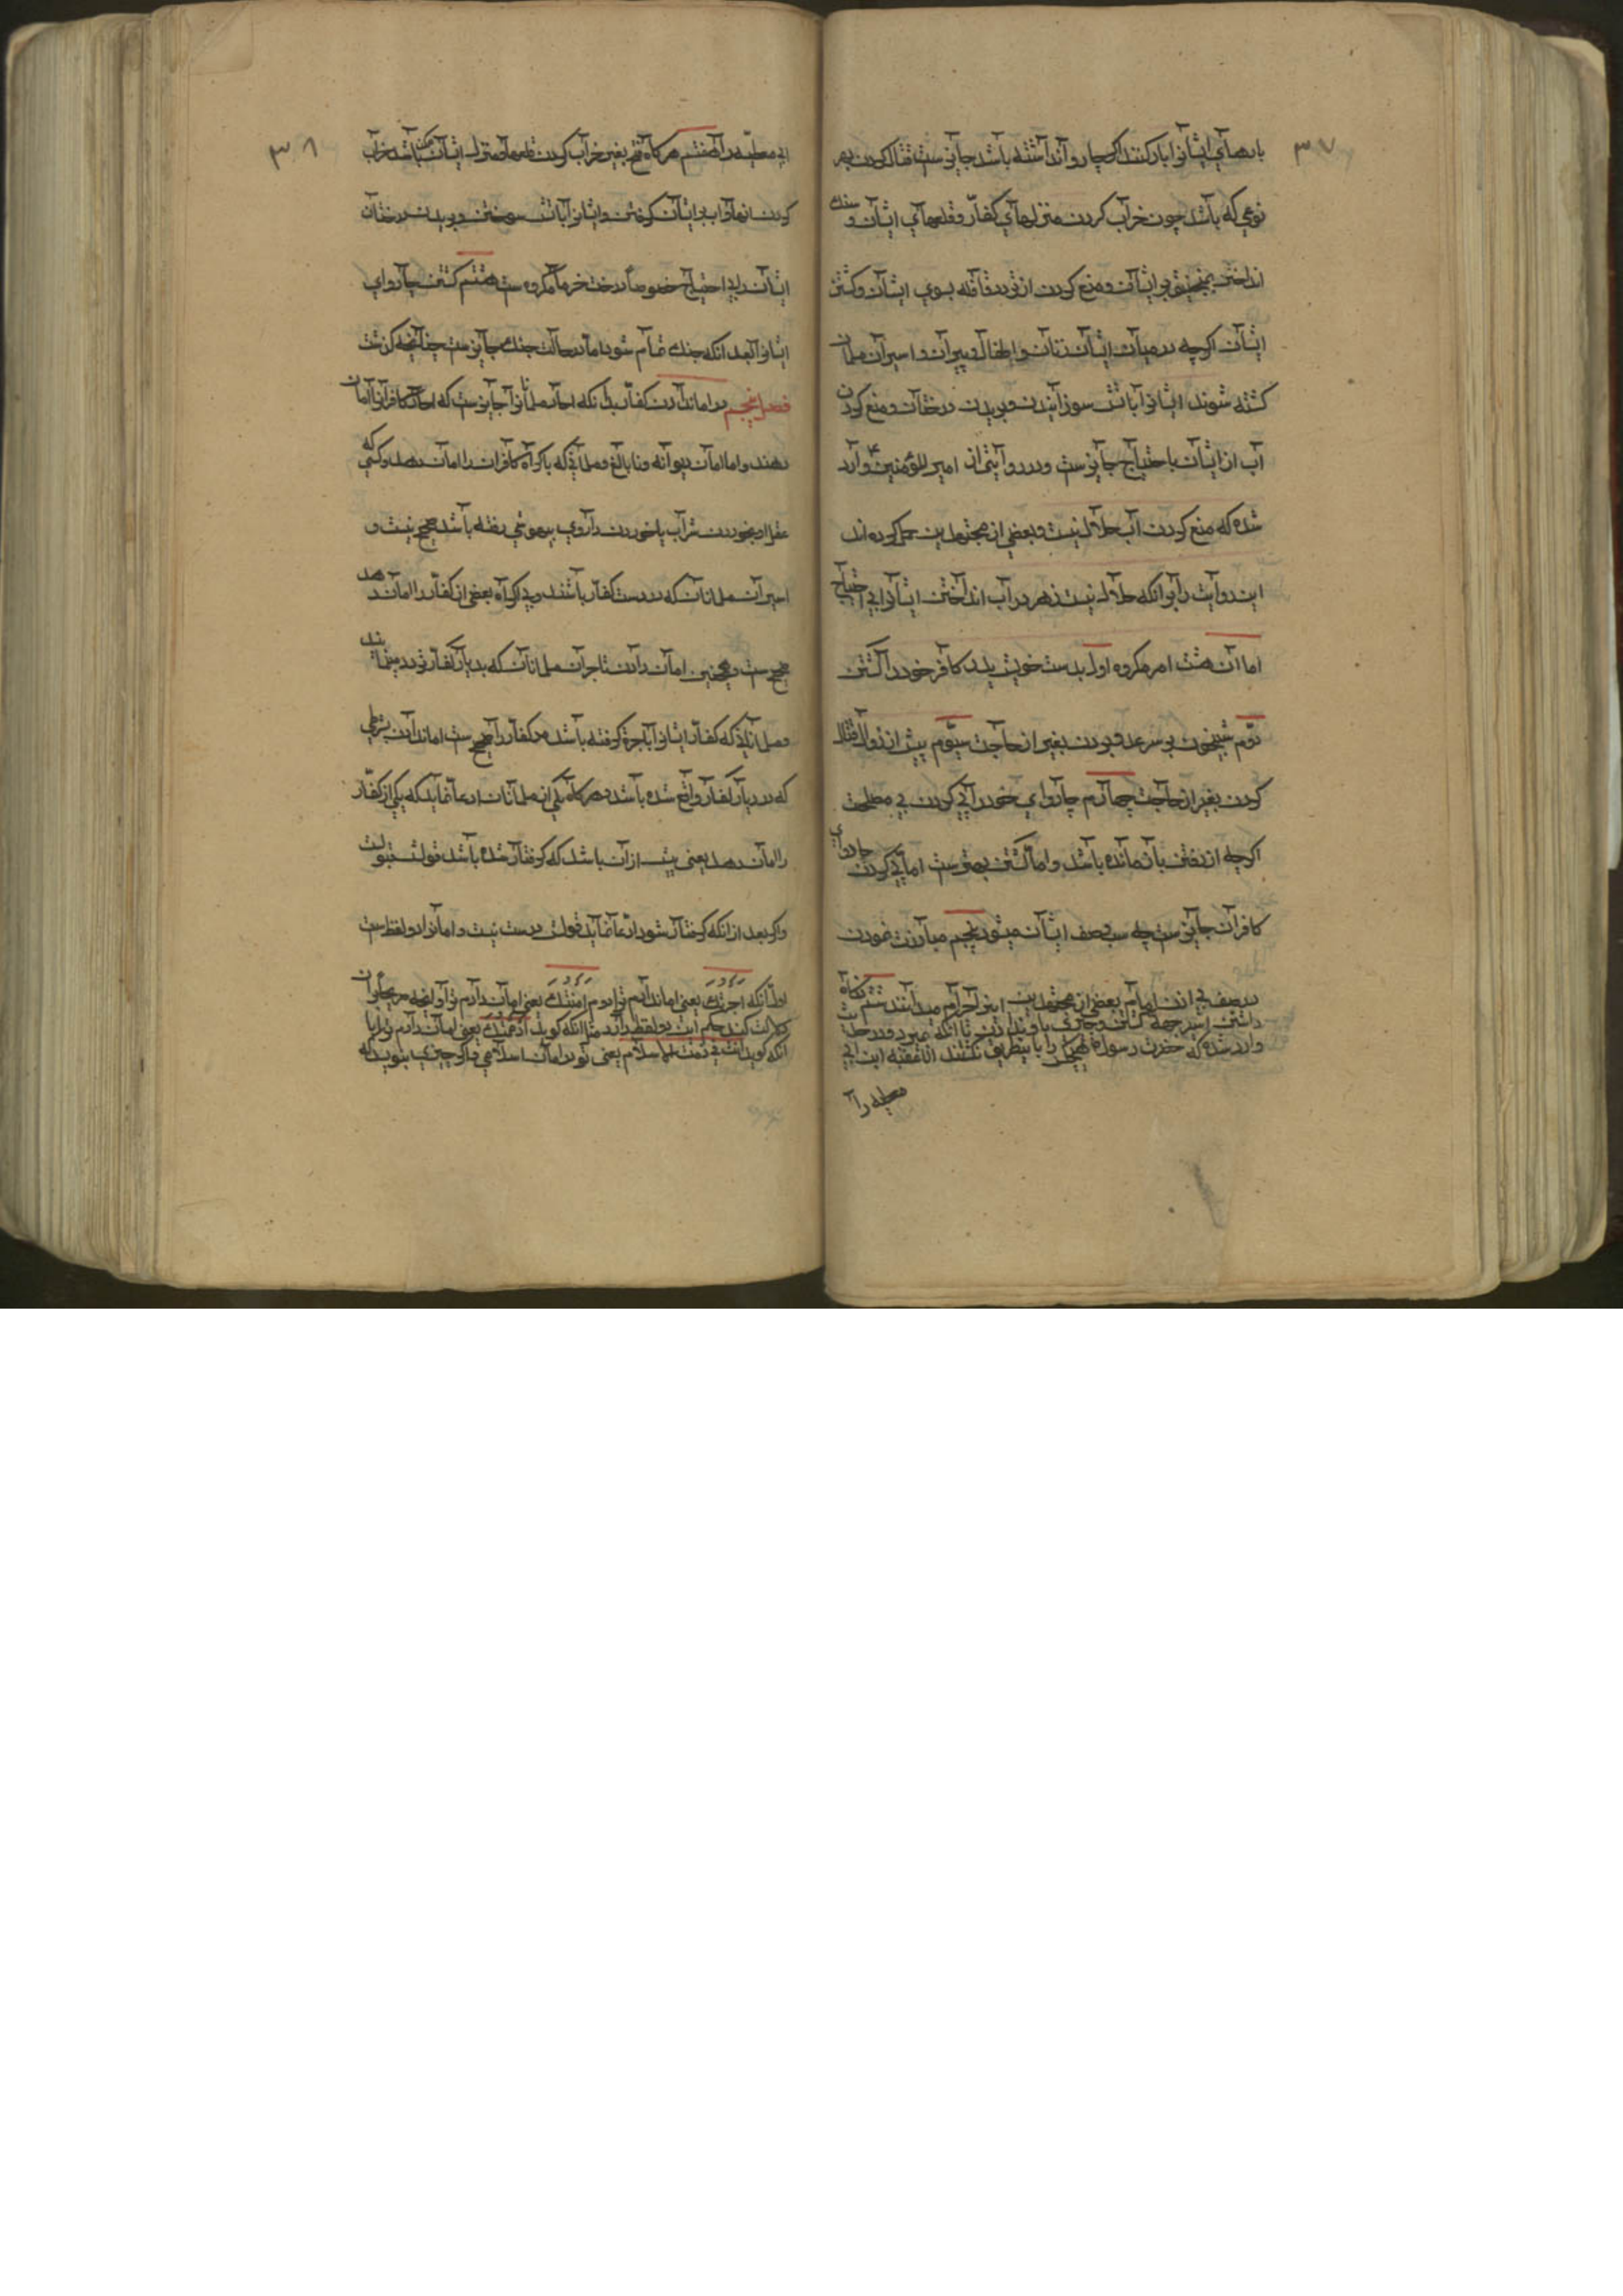 ۳۷
بارهای ایشانرا بار کنند اگر چاروا نداشته باشد جایزست قتال کردن بهر
نوعی که باشد چون خراب کردن منزلهای کفار و قلعهای ایشان و سنك
انداختن بمنجنیق بر ایشان و منع کردن از تردد قافله بسوی ایشان و کشتن
ایشان اگرچه در میان ایشان زنان و اطفال و پیران و اسیران مسلمانان
کشته شوند و ایشانرا بآتش سوزانیدن و بریدن درختان و منع کردن
آب از ایشان با احتیاج جایزست و در روایتی از امیر المؤمنین ع وارد
شده که منع کردن آب حلال نیست و بعضی از مجتهدین حمل کرده اند
این روایت را بر آنکه حلال نیست زهر در آب انداختن ایشانرا بی احتیاج
اما آن هشت امر مکروه اول بدست خویش پدر کافر خود را کشتن
دوم شبیخون بر سر عدو بردن بغیر از حاجت سیوم پیش از زوال قتال
کردن بغیر از حاجت چهارم چاروای خود را پی کردن بی مصلحت
اگرچه از رفتن باز مانده باشد و اما کشتن بهترست اما پی کردن چاروای
کافران جایزست چه سبب ضعف ایشان میشود پنجم مبارزت نمودن
در صف بی اذن امام بعضی از مجتهدین اینرا حرام میدانند ششم نگاه
داشتن اسیر جهة کشتن و چیزی باو ندادن تا آنکه بمیرد و در حدیث
وارد شده که حضرت رسول ص هیچکس را باینطریق نکشتند الا عقبه ابن ابی
معیط را
۳۸
ابی معیط را هفتم هر گاه فتح بغیر خراب کردن قلعها و منزل ایشان ممکن باشد خراب
کردن آنها و آب بر ایشان گرفتن و ایشانرا بآتش سوختن و بریدن درختان
ایشان بی احتیاج خصوصا درخت خرما مکروه ست هشتم کشتن چاروای
ایشانرا بعد از آنکه جنك تمام شود اما در حالت جنك جایزست چنانچه گذشت
فصل پنجم در امان دادن کفار بدانکه احاد مسلمانانرا جایزست که احاد کافرانرا امان
دهند و اما امان دیوانه و نا بالغ و مسلمانی که باکراه کافران را امان دهد و کسی که
عقل او بخوردن شراب یا خوردن داروی بیهوشی رفته باشد صحیح نیست و
اسیران مسلمانان که در دست کفار باشند و بی اکراه بعضی از کفار را امان دهند
صحیح ست و همچنین امان دادن تاجران مسلمانان که بدیار کفار تردد مینمایند
و مسلمانی که کفار ایشانرا باجرة گرفته باشد مر کفار را صحیح ست امان دادن بشرطی
که در دیار کفار واقع شده باشد و هر گاه یکی از مسلمانان ادعا نماید که یکی از کفار
را امان دهد یعنی پیش از آن باشد که گرفتار شده باشد قولش مقبولست
و اگر بعد از آنکه گرفتار شود ادعا نماید قولش درست نیست و امانرا دو لفظ ست
اول آنکه اجرتك یعنی امان دادم ترا دوم امنتك یعنی امان دادم ترا و آنچه صریحا بر آن
دلالت کند حکم این دو لفظ دارد مثل آنکه گوید اذممتك یعنی امان دادم ترا یا
آنکه گوید انت فی ذمت الاسلام یعنی تو در امان اسلامی و اگر چیزی بگوید که